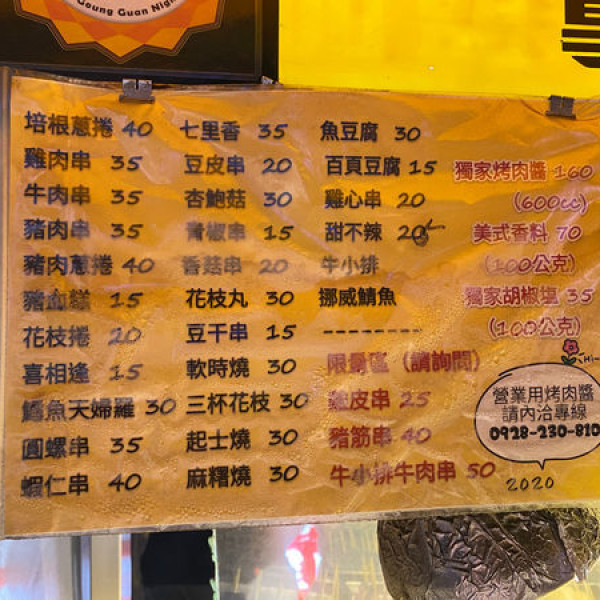 Goung Guan Nigh
培根蔥捲 40
雞肉串 35
牛肉串 35
豬肉串 35
豬肉蔥捲 40
豬血糕 15
花枝捲 20
喜相逢 15
鱈魚天婦羅 30
圓螺串 35
蝦仁串 40
七里香 35
豆皮串 20
杏鮑菇 30
青椒串 15
香菇串 20
花枝丸 30
豆干串 15
軟時燒 30
三杯花枝 30
起士燒 30
麻糬燒 30
魚豆腐 30
百頁豆腐 15
雞心串 20
甜不辣 20
牛小排
挪威鯖魚
--------
限量區（請詢問）
雞皮串 25
豬筋串 40
牛小排牛肉串 50
獨家烤肉醬 160
(600cc)
美式香料 70
(100公克)
獨家胡椒鹽 35
(100公克)
Hi~
營業用烤肉醬
請內洽專線
0928-230-810
2020